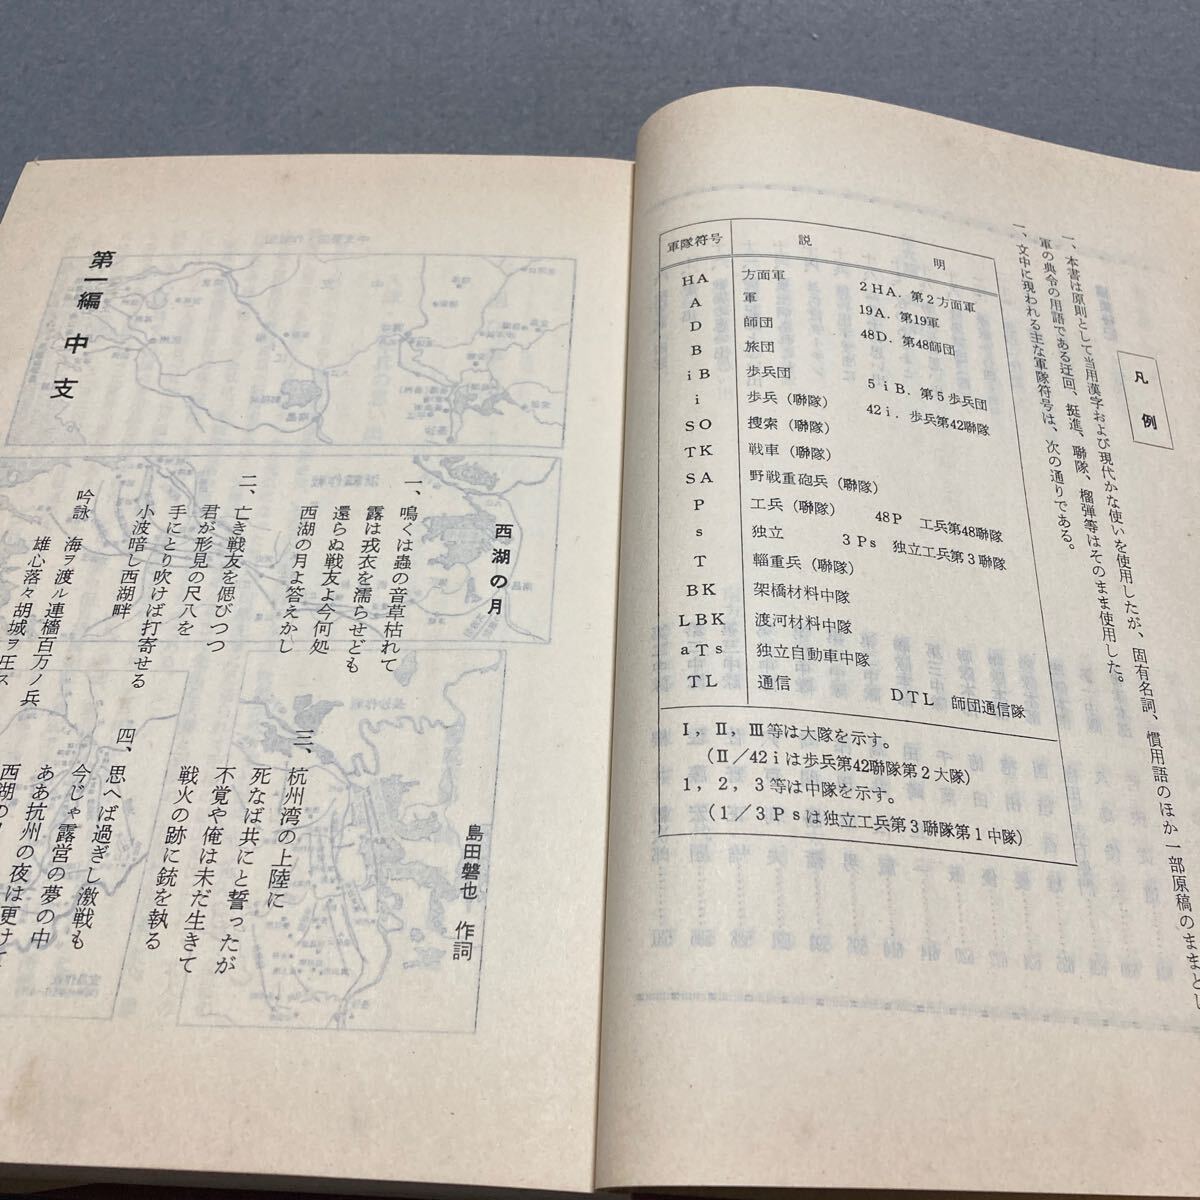 凡例
一、本書は原則として当用漢字および現代かな使いを使用したが、固有名詞、慣用語のほか一部原稿のままとし
軍の典令の用語である迂回、挺進、聯隊、榴弾等はそのまま使用した。
一、文中に現われる主な軍隊符号は、次の通りである。
軍隊符号 説明
HA 方面軍 2HA．第2方面軍
A 軍 19A．第19軍
D 師団 48D．第48師団
B 旅団
iB 歩兵団 5iB．第5歩兵団
i 歩兵（聯隊） 42i．歩兵第42聯隊
SO 捜索（聯隊）
TK 戦車（聯隊）
SA 野戦重砲兵（聯隊）
P 工兵（聯隊） 48P 工兵第48聯隊
s 独立 3Ps 独立工兵第3聯隊
T 輜重兵（聯隊）
BK 架橋材料中隊
LBK 渡河材料中隊
aTs 独立自動車中隊
TL 通信 DTL 師団通信隊
I，II，III等は大隊を示す。
（II／42iは歩兵第42聯隊第2大隊）
1，2，3等は中隊を示す。
（1／3Psは独立工兵第3聯隊第1中隊）
西湖の月
島田磐也 作詞
一、鳴くは蟲の音草枯れて
露は戎衣を濡らせども
還らぬ戦友よ今何処
西湖の月よ答えかし
二、亡き戦友を偲びつつ
君が形見の尺八を
手にとり吹けば打寄せる
小波暗し西湖畔
吟詠 海ヲ渡ル連檣百万ノ兵
雄心落々胡城ヲ圧ス
三、杭州湾の上陸に
死なば共にと誓ったが
不覚や俺は未だ生きて
戦火の跡に銃を執る
四、思へば過ぎし激戦も
今じゃ露営の夢の中
ああ杭州の夜は更けて
西湖の
第一編 中支